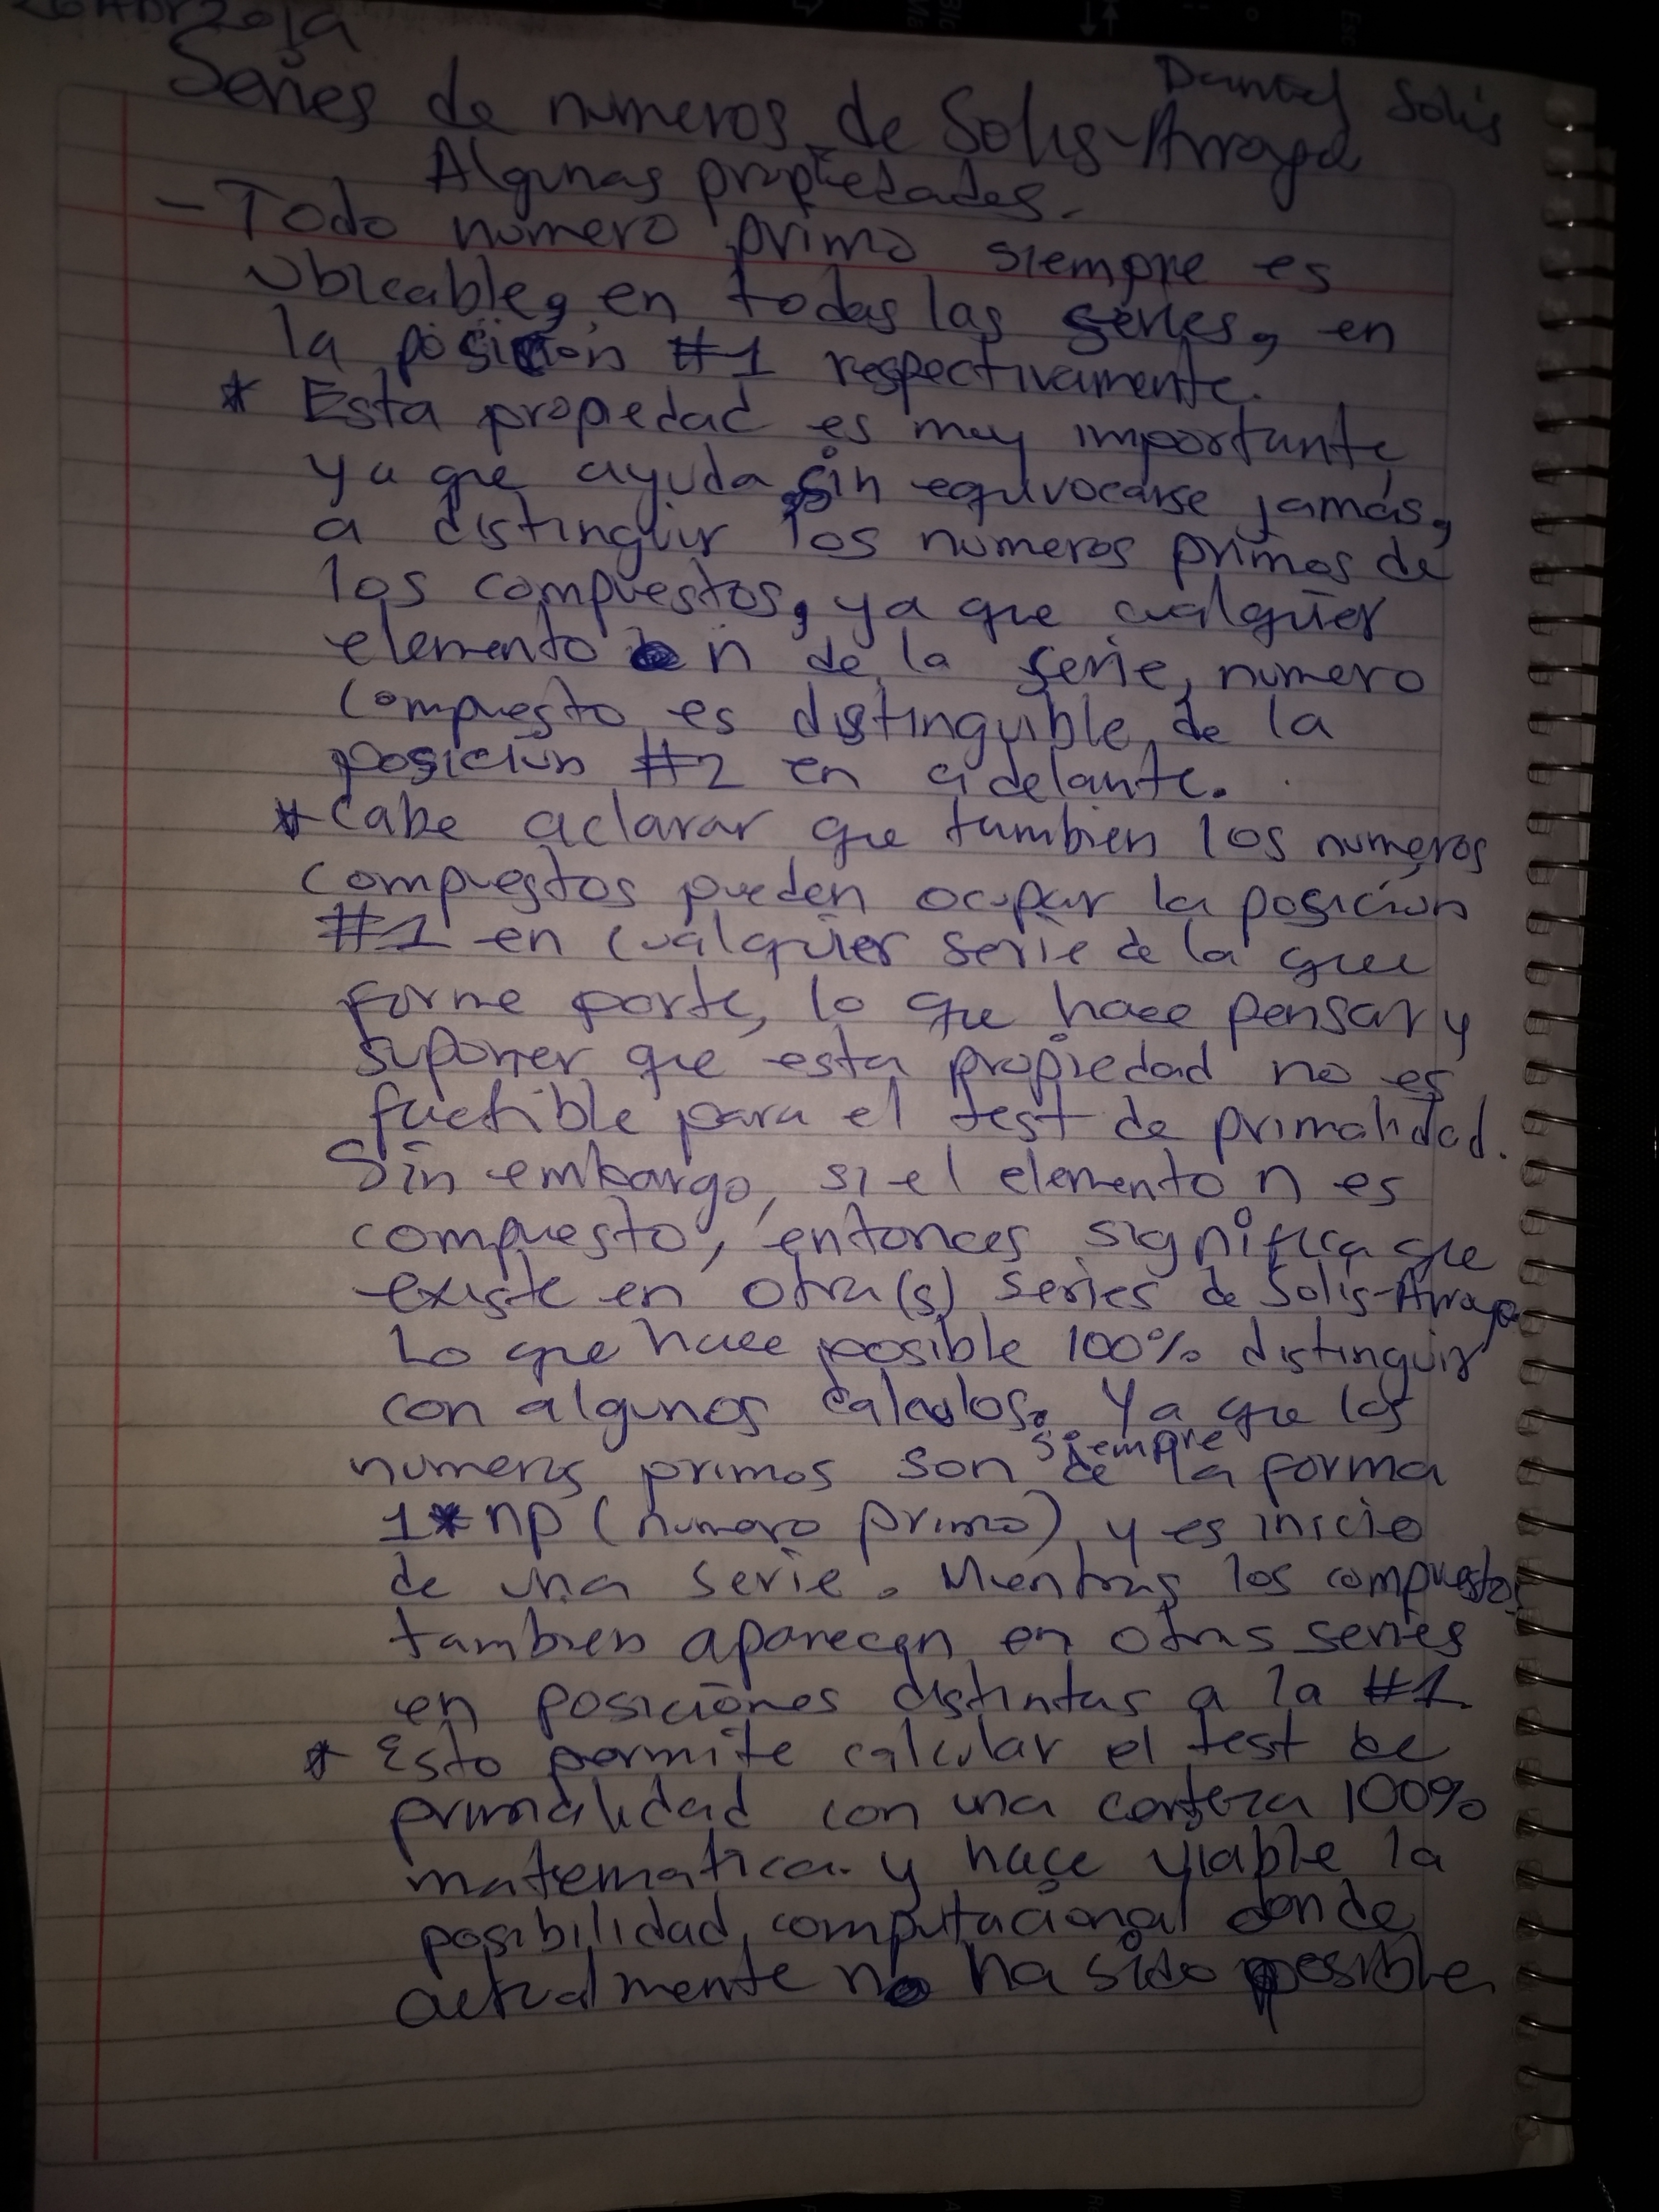 Daniel Solis
Series de numeros de Solis-Arroyo
Algunas propiedades.
- Todo numero primo siempre es
ubicable, en todas las series, en
la posición #1 respectivamente.
* Esta propiedad es muy importante
ya que ayuda sin equivocarse jamás,
a distinguir los numeros primos de
los compuestos, ya que cualquier
elemento n de la serie, numero
compuesto es distinguible de la
posición #2 en adelante.
* Cabe aclarar que tambien los numeros
compuestos pueden ocupar la posición
#1 en cualquier serie de la que
forme parte, lo que hace pensar y
suponer que esta propiedad no es
factible para el test de primalidad.
Sin embargo, si el elemento n es
compuesto, entonces significa que
existe en otra(s) series de Solis-Arroyo
Lo que hace posible 100% distinguir
con algunos calculos. Ya que los
numeros primos son siempre de la forma
1*np (numero primo) y es inicio
de una serie. Mientras los compuestos
tambien aparecen en otras series
en posiciones distintas a la #1
* Esto permite calcular el test de
primalidad con una certeza 100%
matematica. y hace viable la
posibilidad computacional donde
actualmente no ha sido posible